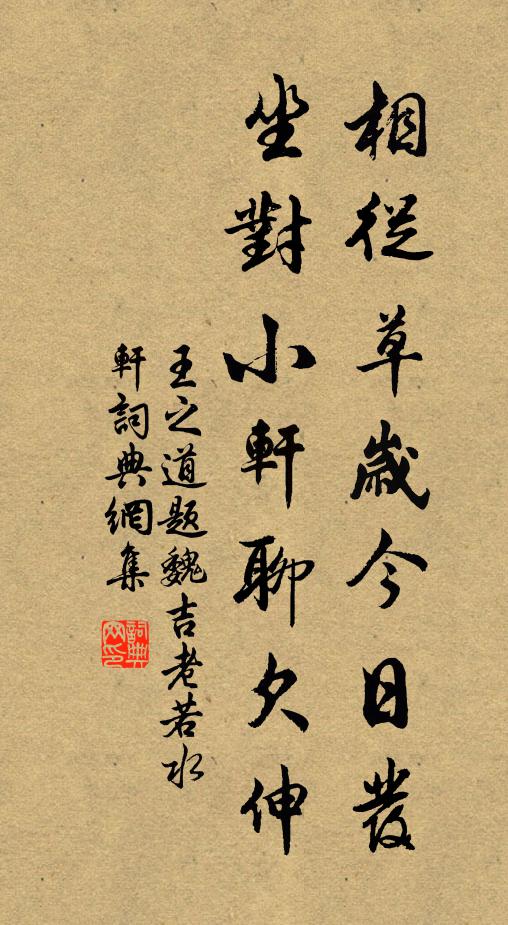 相從草歲今日發
坐對小軒聊欠伸
王之道題魏吉老若水
軒詞典網集
詞典
网印